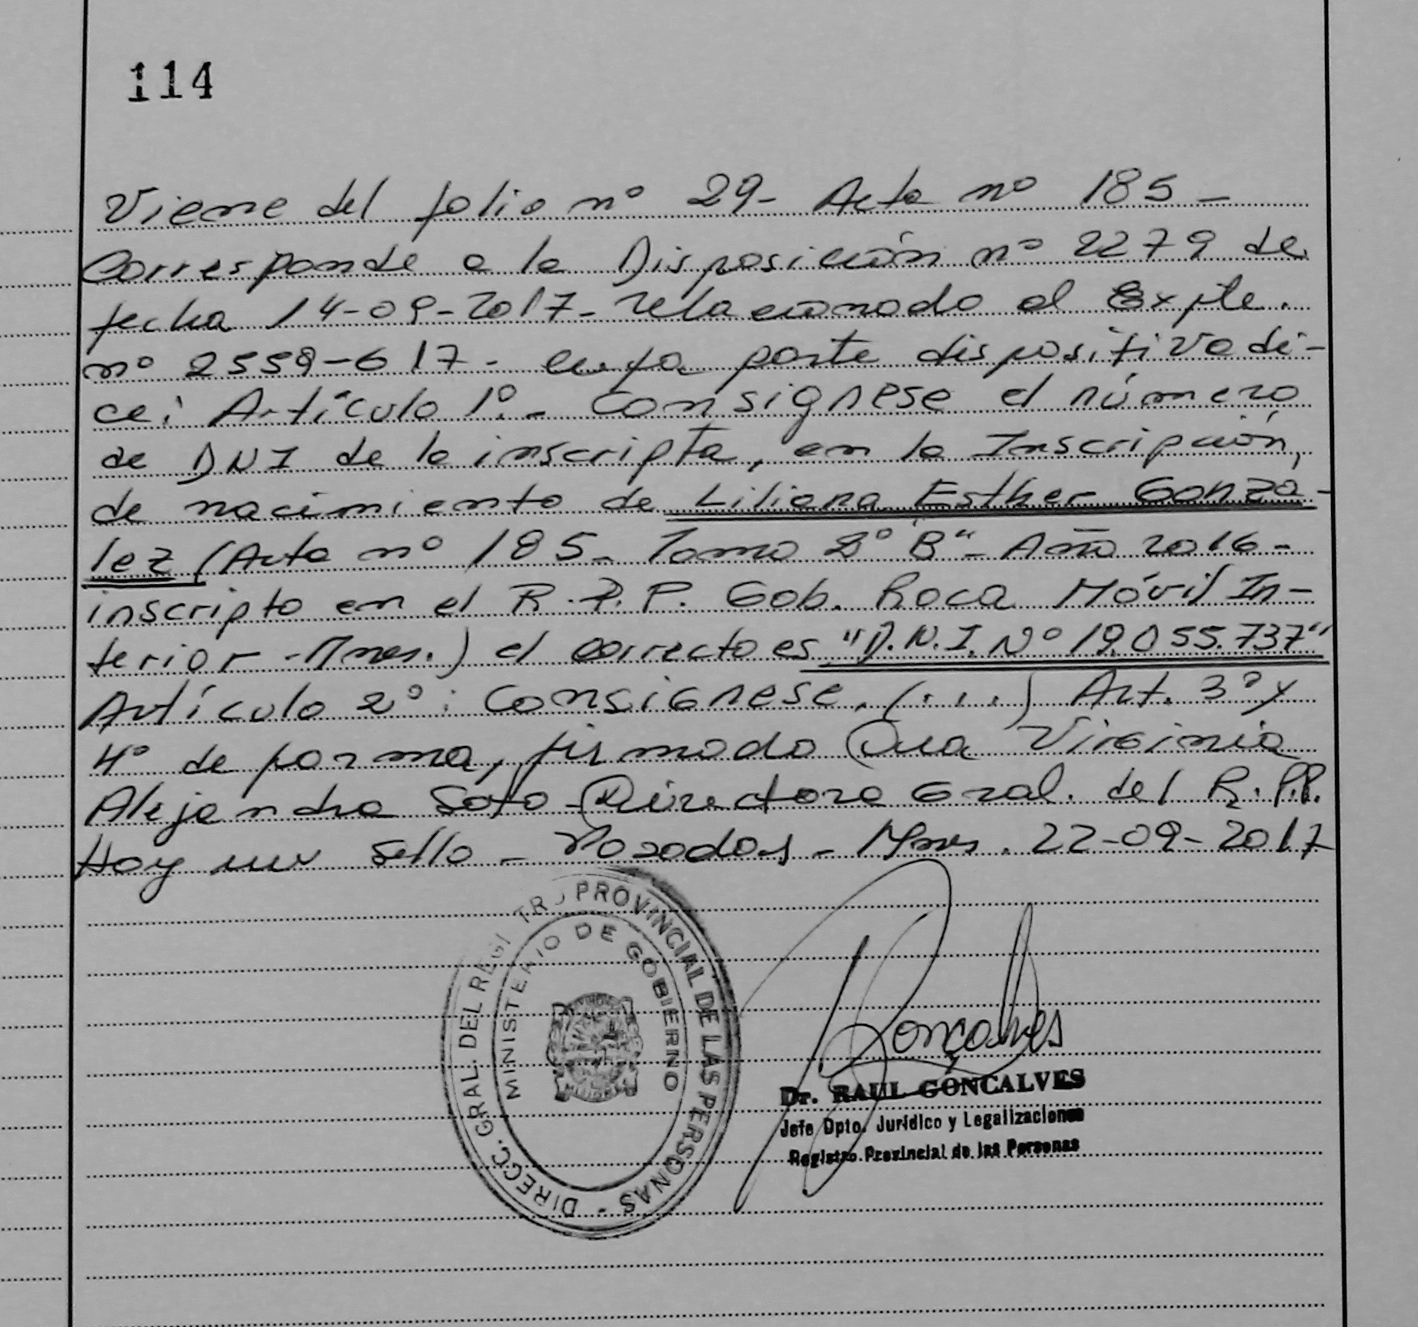 114
Viene del folio nº 29- Acta nº 185-
Corresponde a la Disposición nº 2279 de
fecha 14-09-2017- relacionado al Expte.
nº 2559-617- cuya parte dispositiva di-
ce: Artículo 1º- Consignese el número
de DNI de la inscripta, en la Inscripción,
de nacimiento de Liliana Esther Gonzá-
lez (Acta nº 185- Tomo 2º "B"- Año 2016-
inscripto en el R.P.P. Gob. Roca Móvil In-
terior -Mnes.) el correcto es "D.N.I. Nº 19.055.737"
Artículo 2º: Consignese, (...) Art. 3º y
4º de forma, firmado Dra Virginia
Alejandra Soto Directora Gral. del R.P.P.
Hoy un sello - Posadas - Mnes. 22-09-2017
DIRECC. GRAL. DEL REGISTRO PROVINCIAL DE LAS PERSONAS -
MINISTERIO DE GOBIERNO
Gonçalves
Dr. RAUL GONCALVES
Jefe Dpto. Jurídico y Legalizaciones
Registro Provincial de las Personas